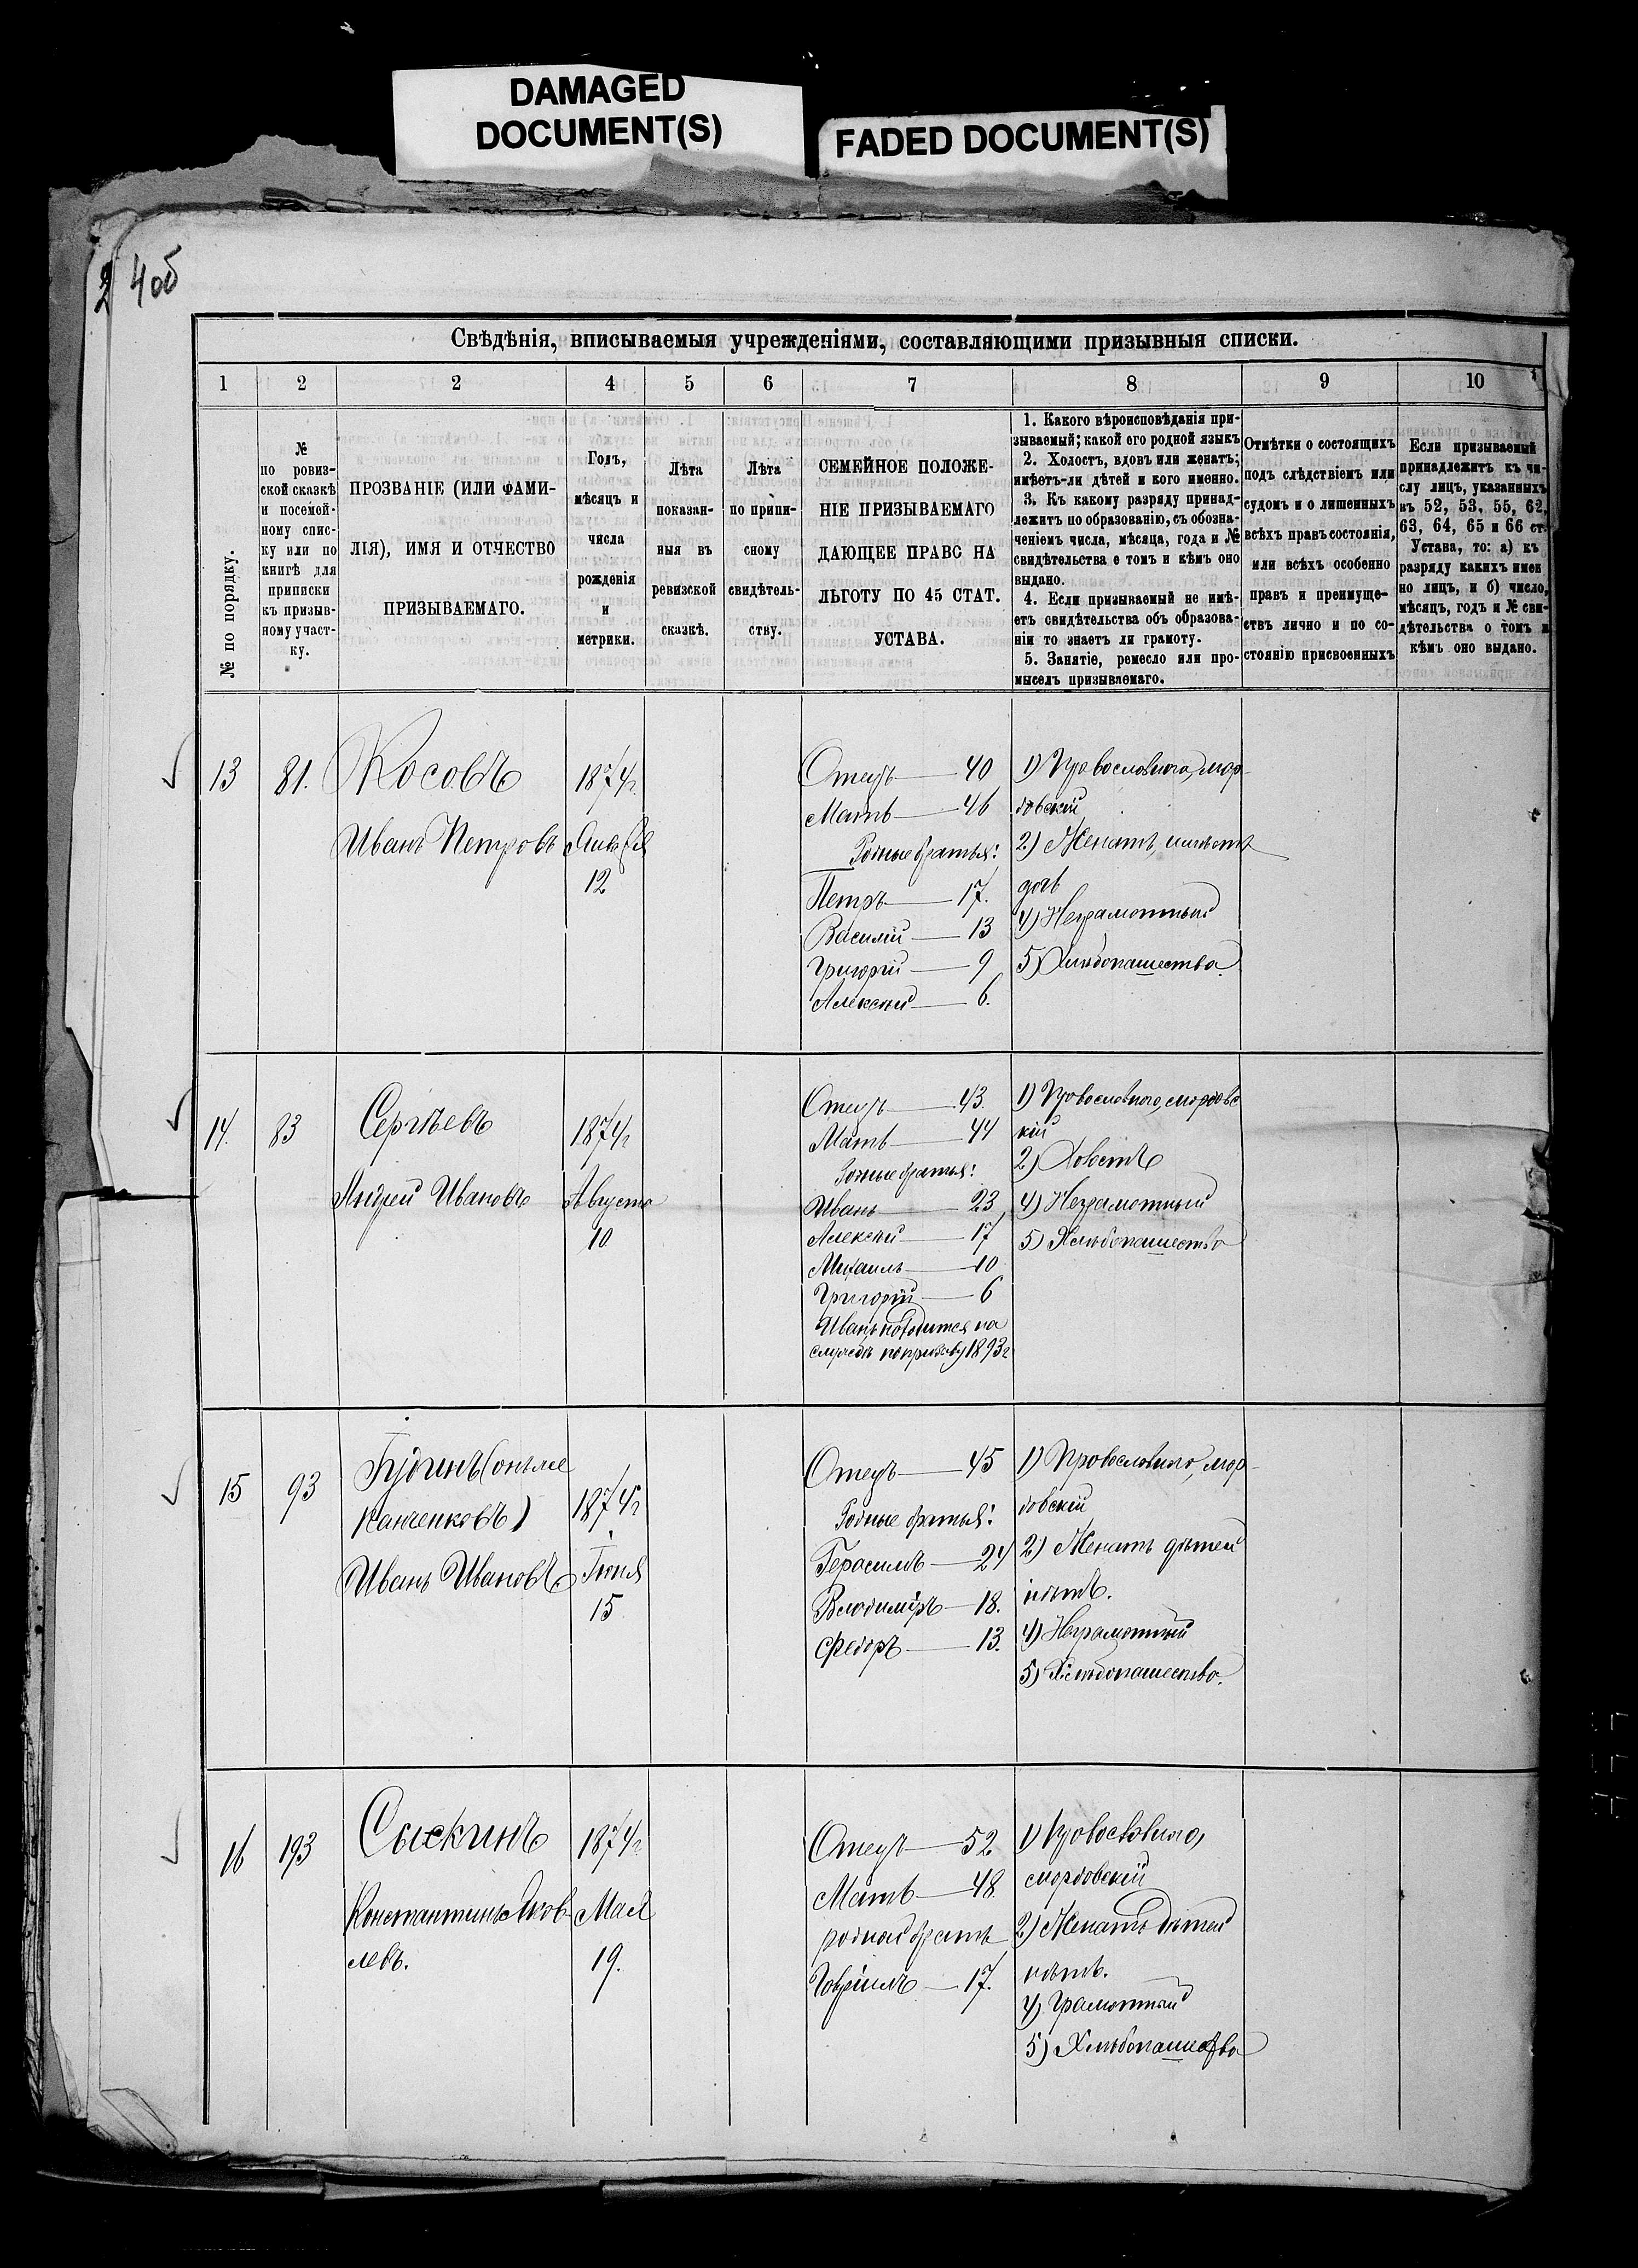 DAMAGED
DOCUMENT(S)
FADED DOCUMENT(S)
2 4об
Свѣдѣнія, вписываемыя учрежденіями, составляющими призывныя списки.
1 2 2 4 5 6 7 8 9 10
№ по порядку.
№
по ровиз-
ской сказкѣ
и посемей-
ному спис-
ку или по
книгѣ для
приписки
къ призыв-
ному участ-
ку.
ПРОЗВАНІЕ (ИЛИ ФАМИ-
ЛІЯ), ИМЯ И ОТЧЕСТВО
ПРИЗЫВАЕМАГО.
Годъ,
мѣсяцъ и
числа
рожденія
и
метрики.
Лѣта
показан-
ныя въ
ревизской
сказкѣ.
Лѣта
по припи-
сному
свидѣтель-
ству.
СЕМЕЙНОЕ ПОЛОЖЕ-
НІЕ ПРИЗЫВАЕМАГО
ДАЮЩЕЕ ПРАВО НА
ЛЬГОТУ ПО 45 СТАТ.
УСТАВА.
1. Какого вѣроисповѣданія при-
зываемый; какой его родной языкъ
2. Холостъ, вдовъ или женатъ;
имѣетъ-ли дѣтей и кого именно.
3. Къ какому разряду принад-
лежитъ по образованію, съ обозна-
ченіемъ числа, мѣсяца, года и №
свидѣтельства о томъ и кѣмъ оно
выдано.
4. Если призываемый не имѣ-
етъ свидѣтельства объ образова-
ніи то знаетъ ли грамоту.
5. Занятіе, ремесло или про-
мыселъ призываемаго.
Отмѣтки о состоящихъ
подъ слѣдствіемъ или
судомъ и о лишенныхъ
всѣхъ правъ состоянія,
или всѣхъ особенно
правъ и преимуще-
ствъ лично и по со-
стоянію присвоенныхъ
Если призываемый
принадлежитъ къ чи-
слу лицъ, указанныхъ
въ 52, 53, 55, 62,
63, 64, 65 и 66 ст.
Устава, то: а) къ
разряду какихъ имен
но лицъ, и б) число,
мѣсяцъ, годъ и № сви-
дѣтельства о томъ и
кѣмъ оно выдано.
13
81.
Косовъ
Иванъ Петровъ
1874г.
Января
12
Отецъ — 40
Мать — 46
Родные братья:
Петръ — 17.
Василій — 13
Григорій — 9
Алексѣй — 6.
1) Православного, мор-
довскій
2) Женатъ, имѣетъ
дочь
4) Неграмотный
5) Хлѣбопашество.
14.
83
Сергѣевъ
Андрей Ивановъ
1874г
Августа
10
Отецъ — 43.
Мать — 44
Родные братья:
Иванъ — 23
Алексѣй — 17
Михаилъ — 10
Григорій — 6
Иванъ находится на
службѣ по призыву 1893г
1) Православного, мордовс
кій
2) Холостъ
4) Неграмотный
5) Хлѣбопашество
15
93
Гудинъ (онъ же
Канченковъ)
Иванъ Ивановъ
1874г
Іюня
15
Отецъ — 45
Родные братья:
Герасимъ — 24
Владиміръ — 18.
Федоръ — 13.
1) Православного, мор-
довскій
2) Женатъ дѣтей
нѣтъ.
4) Неграмотный
5) Хлѣбопашество.
16
193
Сыскинъ
Константинъ Яков-
левъ.
1874г
Мая
19.
Отецъ — 52
Мать — 48.
родной братъ
Гаврилъ — 17.
1) Православного,
мордовскій
2) Женатъ дѣтей
нѣтъ.
4) Грамотный
5) Хлѣбопашество